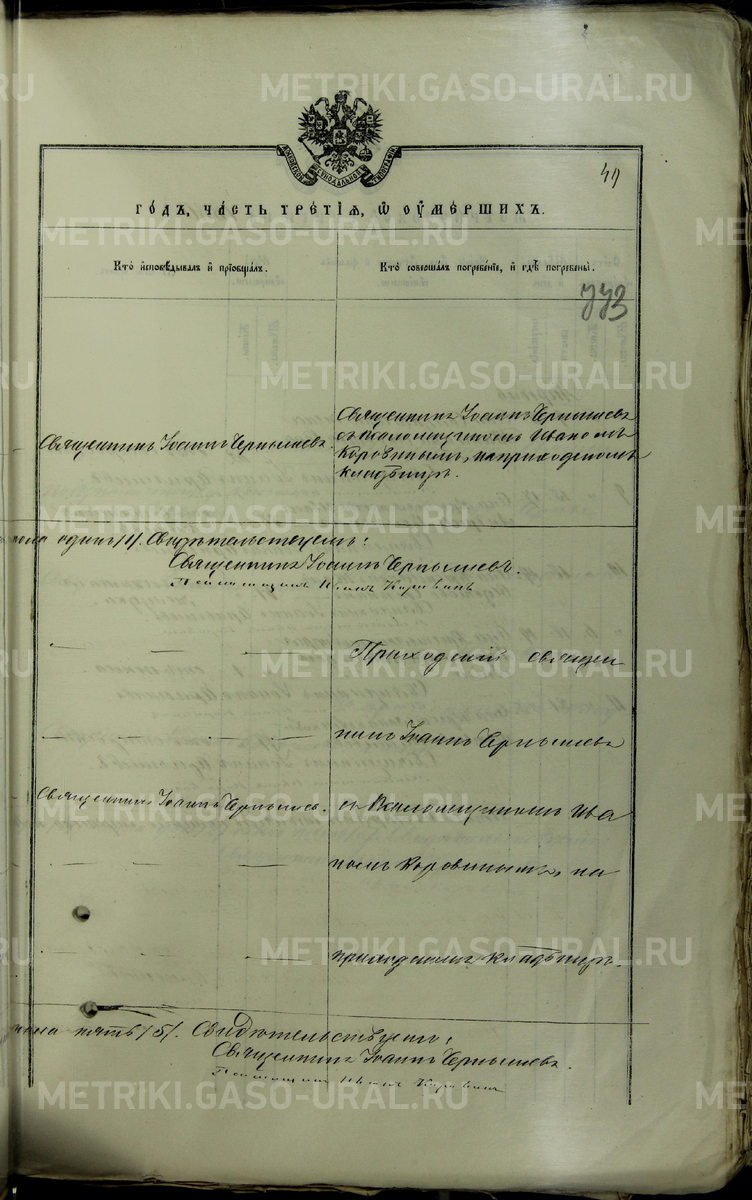 METRIKI.GASO-URAL.RU
49
ГОДЪ, ЧАСТЬ ТРЕТІЯ, Ѡ ОУМЕРШИХЪ.
Кто исповѣдывалъ и пріобщалъ.
Кто совершалъ погребеніе, и гдѣ погребены.
773
Священникъ Іоаннъ Чернышевъ
съ Псаломщикомъ Иваномъ
Коровинымъ, на приходскомъ
кладбищѣ.
Священникъ Іоаннъ Чернышевъ.
одинъ /1/. Свидѣтельствуемъ:
Священникъ Іоаннъ Чернышевъ.
Псаломщикъ Иванъ Коровинъ
Приходскій священ
никъ Іоаннъ Чернышевъ
Священникъ Іоаннъ Чернышевъ.
съ Псаломщикомъ Ива
номъ Коровинымъ, на
приходскомъ кладбищѣ.
пять /5/. Свидѣтельствуемъ:
Священникъ Іоаннъ Чернышевъ.
Псаломщикъ Иванъ Коровинъ